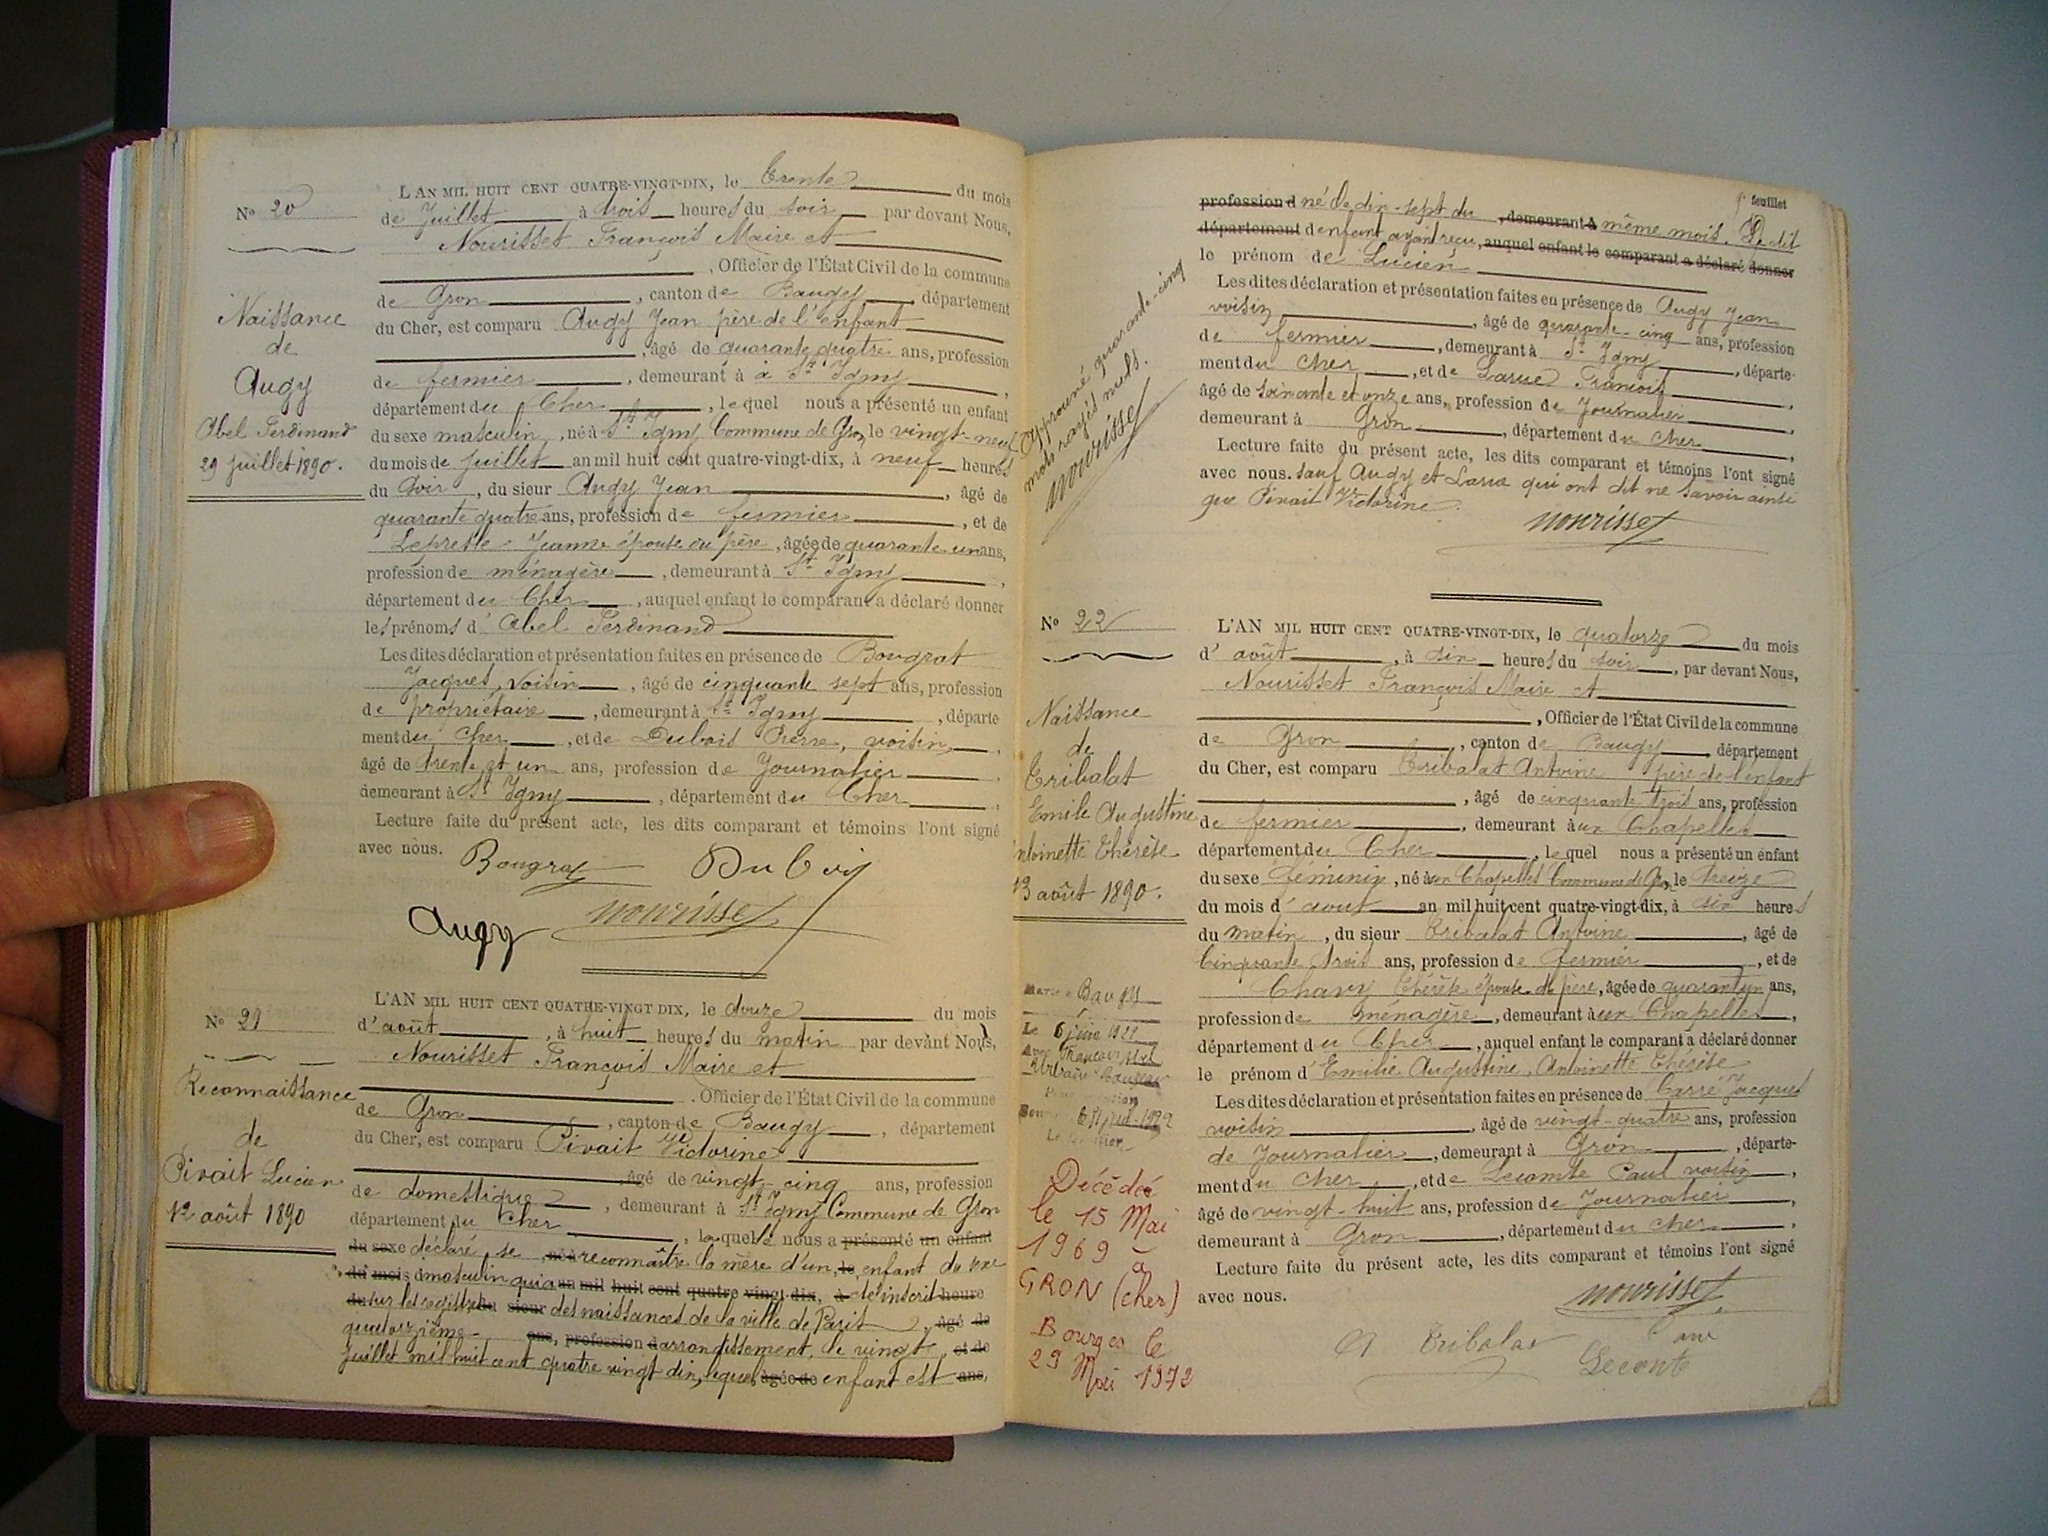 N° 20
Naissance
de
Augy
Abel Ferdinand
29 juillet 1890.
L'AN MIL HUIT CENT QUATRE-VINGT-DIX, le trente du mois
de Juillet à trois heures du soir par devant Nous,
Nourisset François Maire et
, Officier de l'État Civil de la commune
de Gron, canton de Baugy département
du Cher, est comparu Augy Jean père de l'enfant
, âgé de quarante quatre ans, profession
de fermier, demeurant à à St Igny,
département du Cher, lequel nous a présenté un enfant
du sexe masculin, né à St Igny Commune de Gron, le vingt-neuf
du mois de Juillet an mil huit cent quatre-vingt-dix, à neuf heures
du soir, du sieur Augy Jean, âgé de
quarante quatre ans, profession de fermier, et de
Lepresle Jeanne épouse du père, âgée de quarante un ans,
profession de ménagère, demeurant à St Igny,
département du Cher, auquel enfant le comparant a déclaré donner
les prénoms d'Abel Ferdinand
Les dites déclaration et présentation faites en présence de Bougrat
Jacques, voisin, âgé de cinquante sept ans, profession
de propriétaire, demeurant à St Igny, départe
ment du Cher, et de Dubois Pierre, voisin,
âgé de trente et un ans, profession de Journalier
demeurant à St Igny, département du Cher,
Lecture faite du présent acte, les dits comparant et témoins l'ont signé
avec nous. Bougrat Dubois
Augy nourisset
N° 21
Reconnaissance
de
Pivait Lucien
12 août 1890
L'AN MIL HUIT CENT QUATRE-VINGT DIX, le douze du mois
d'août, à huit heures du matin par devant Nous,
Nourisset François Maire et
. Officier de l'État Civil de la commune
de Gron, canton de Baugy, département
du Cher, est comparu Pivait Victorine
âgé de vingt-cinq ans, profession
de domestique, demeurant à St Igny Commune de Gron
département du Cher, laquelle nous a présenté un enfant
du sexe déclaré se né à reconnaître la mère d'un, le enfant du sexe
du mois d masculin qui a an mil huit cent quatre vingt-dix, à été inscrit heure
du sur les registres du sieur des naissances de la ville de Paris, âgé de
quatorzième ans, profession d arrondissement, le vingt, et de
Juillet mil huit cent quatre vingt dix, lequel âgée de enfant est ans,
feuillet
profession d né le dix-sept du, demeurant à même mois. Le dit
département d enfant ayant reçu, auquel enfant le comparant a déclaré donner
le prénom de Lucien
Les dites déclaration et présentation faites en présence de Augy Jean
voisin, âgé de quarante-cinq ans, profession
de fermier, demeurant à St Igny, départe-
ment du Cher, et de Larue François,
âgé de soixante et onze ans, profession de Journalier,
demeurant à Gron, département du Cher,
Lecture faite du présent acte, les dits comparant et témoins l'ont signé
avec nous. sauf Augy et Larue qui ont dit ne savoir ainsi
que Pivait Victorine.
nourisset
Approuvé quarante-cinq
mots rayés nuls.
nourisset
N° 22
Naissance
de
Tribalat
Emilie Augustine
Antoinette Thérèse
13 août 1890.
Baugy
Le 6 juin 1922
Décédée
le 15 Mai
1969 à
GRON (Cher)
Bourges le
29 Mai 1972
L'AN MIL HUIT CENT QUATRE-VINGT-DIX, le quatorze du mois
d'août, à six heures du soir, par devant Nous,
Nourisset François Maire et
, Officier de l'État Civil de la commune
de Gron, canton de Baugy département
du Cher, est comparu Tribalat Antoine père de l'enfant
, âgé de cinquante trois ans, profession
de fermier, demeurant aux Chapelles
département du Cher, lequel nous a présenté un enfant
du sexe féminin, né aux Chapelles Commune de Gron, le treize
du mois d'août an mil huit cent quatre-vingt-dix, à six heures
du matin, du sieur Tribalat Antoine, âgé de
Cinquante trois ans, profession de fermier, et de
Chavy Thérèse épouse du père, âgée de quarante un ans,
profession de ménagère, demeurant aux Chapelles,
département du Cher, auquel enfant le comparant a déclaré donner
le prénom d'Emilie Augustine, Antoinette Thérèse
Les dites déclaration et présentation faites en présence de Carré Jacques
voisin, âgé de vingt-quatre ans, profession
de Journalier, demeurant à Gron, départe-
ment du Cher, et de Lecomte Paul voisin,
âgé de vingt-huit ans, profession de Journalier,
demeurant à Gron, département du Cher,
Lecture faite du présent acte, les dits comparant et témoins l'ont signé
avec nous. nourisset
A Tribalat
Leconte